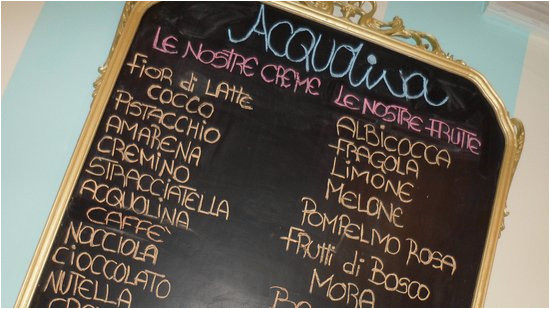 Acquolina
LE NOSTRE CREME
fior di LATTE
COCCO
PISTACCHIO
AMARENA
CREMINO
STRACCIATELLA
ACQUOLINA
CAFFE
NOCCIOLA
CIOCCOLATO
NUTELLA
LE NOSTRE FRUTTE
ALBICOCCA
FRAGOLA
LIMONE
MELONE
POMPELMO ROSA
fRUTTi di BOSCO
MORA